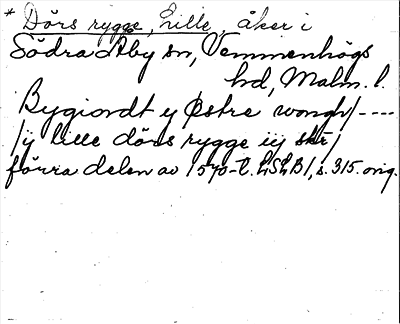 * Dörs rygge, Lille, åker i
Södra Åby sn, Vemmenhögs
hd, Malm. l.
Bygiordt y Østre wongh/----
/y lille dörs rygge iij skr/
förra delen av 1570-t. LSLB1, s. 315. orig.